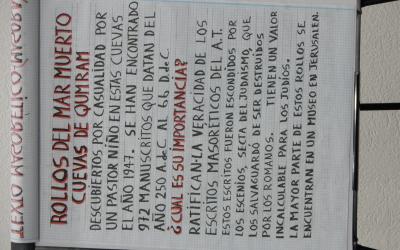 ROLLOS DEL MAR MUERTO
CUEVAS DE QUMRAM
DESCUBIERTOS POR CASUALIDAD POR
UN PASTOR NIÑO EN ESTAS CUEVAS
EL AÑO 1947. SE HAN ENCONTRADO
972 MANUSCRITOS QUE DATAN DEL
AÑO 250 A.de C AL 66 D.de C.
¿CUAL ES SU IMPORTANCIA?
RATIFICAN LA VERACIDAD DE LOS
ESCRITOS MASORETICOS DEL A.T.
ESTOS ESCRITOS FUERON ESCONDIDOS POR
LOS ESCENIOS, SECTA DEL JUDAISMO, QUE
LOS SALVAGUARDÓ DE SER DESTRUIDOS
POR LOS ROMANOS. TIENEN UN VALOR
INCALCULABLE PARA LOS JUDÍOS.
LA MAYOR PARTE DE ESTOS ROLLOS SE
ENCUENTRAN EN UN MUSEO EN JERUSALEN.